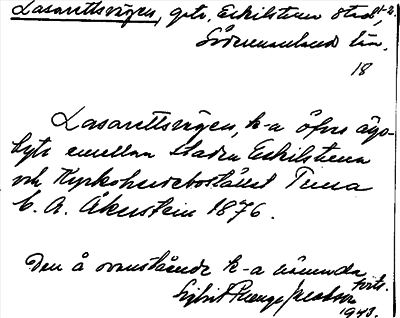 Lasarettsvägen, gata, Eskilstuna stad,
Södermanland län.
18
Lasarettsvägen, k-a öfver ägo-
byte emellan staden Eskilstuna
och Kyrkoherdebostället Tuna
C. A. Åkerstein 1876.
Den å ovanstående k-a nämnda
forts.
1943.